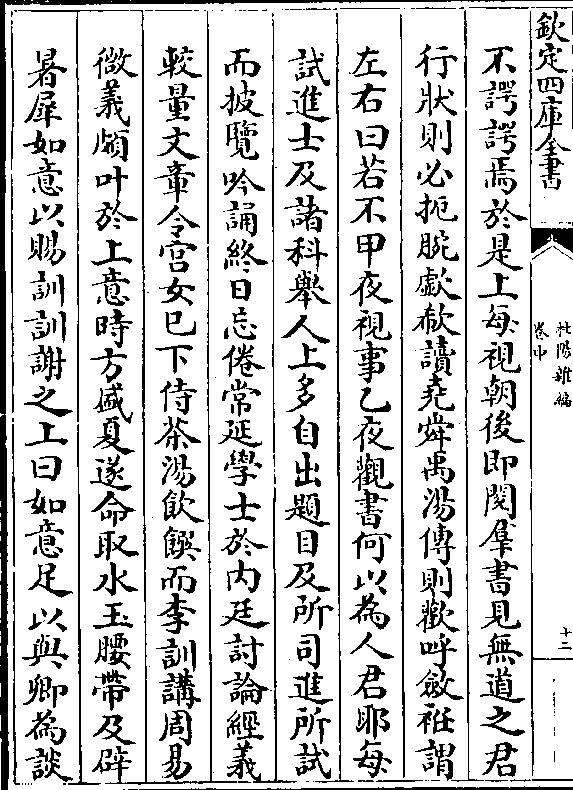 欽定四庫全書
杜陽雜編
卷中
十二
不諤諤焉於是上每視朝後即閱羣書見無道之君
行狀則必扼腕歔欷讀堯舜禹湯傳則歡呼斂袵謂
左右曰若不甲夜視事乙夜觀書何以為人君耶每
試進士及諸科舉人上多自出題目及所司進所試
而披覽吟誦終日忘倦常延學士於内廷討論經義
較量文章令宫女已下侍茶湯飲饌而李訓講周易
微義頗叶於上意時方盛夏遂命取水玉腰帶及辟
暑犀如意以賜訓訓謝之上曰如意足以與卿為談